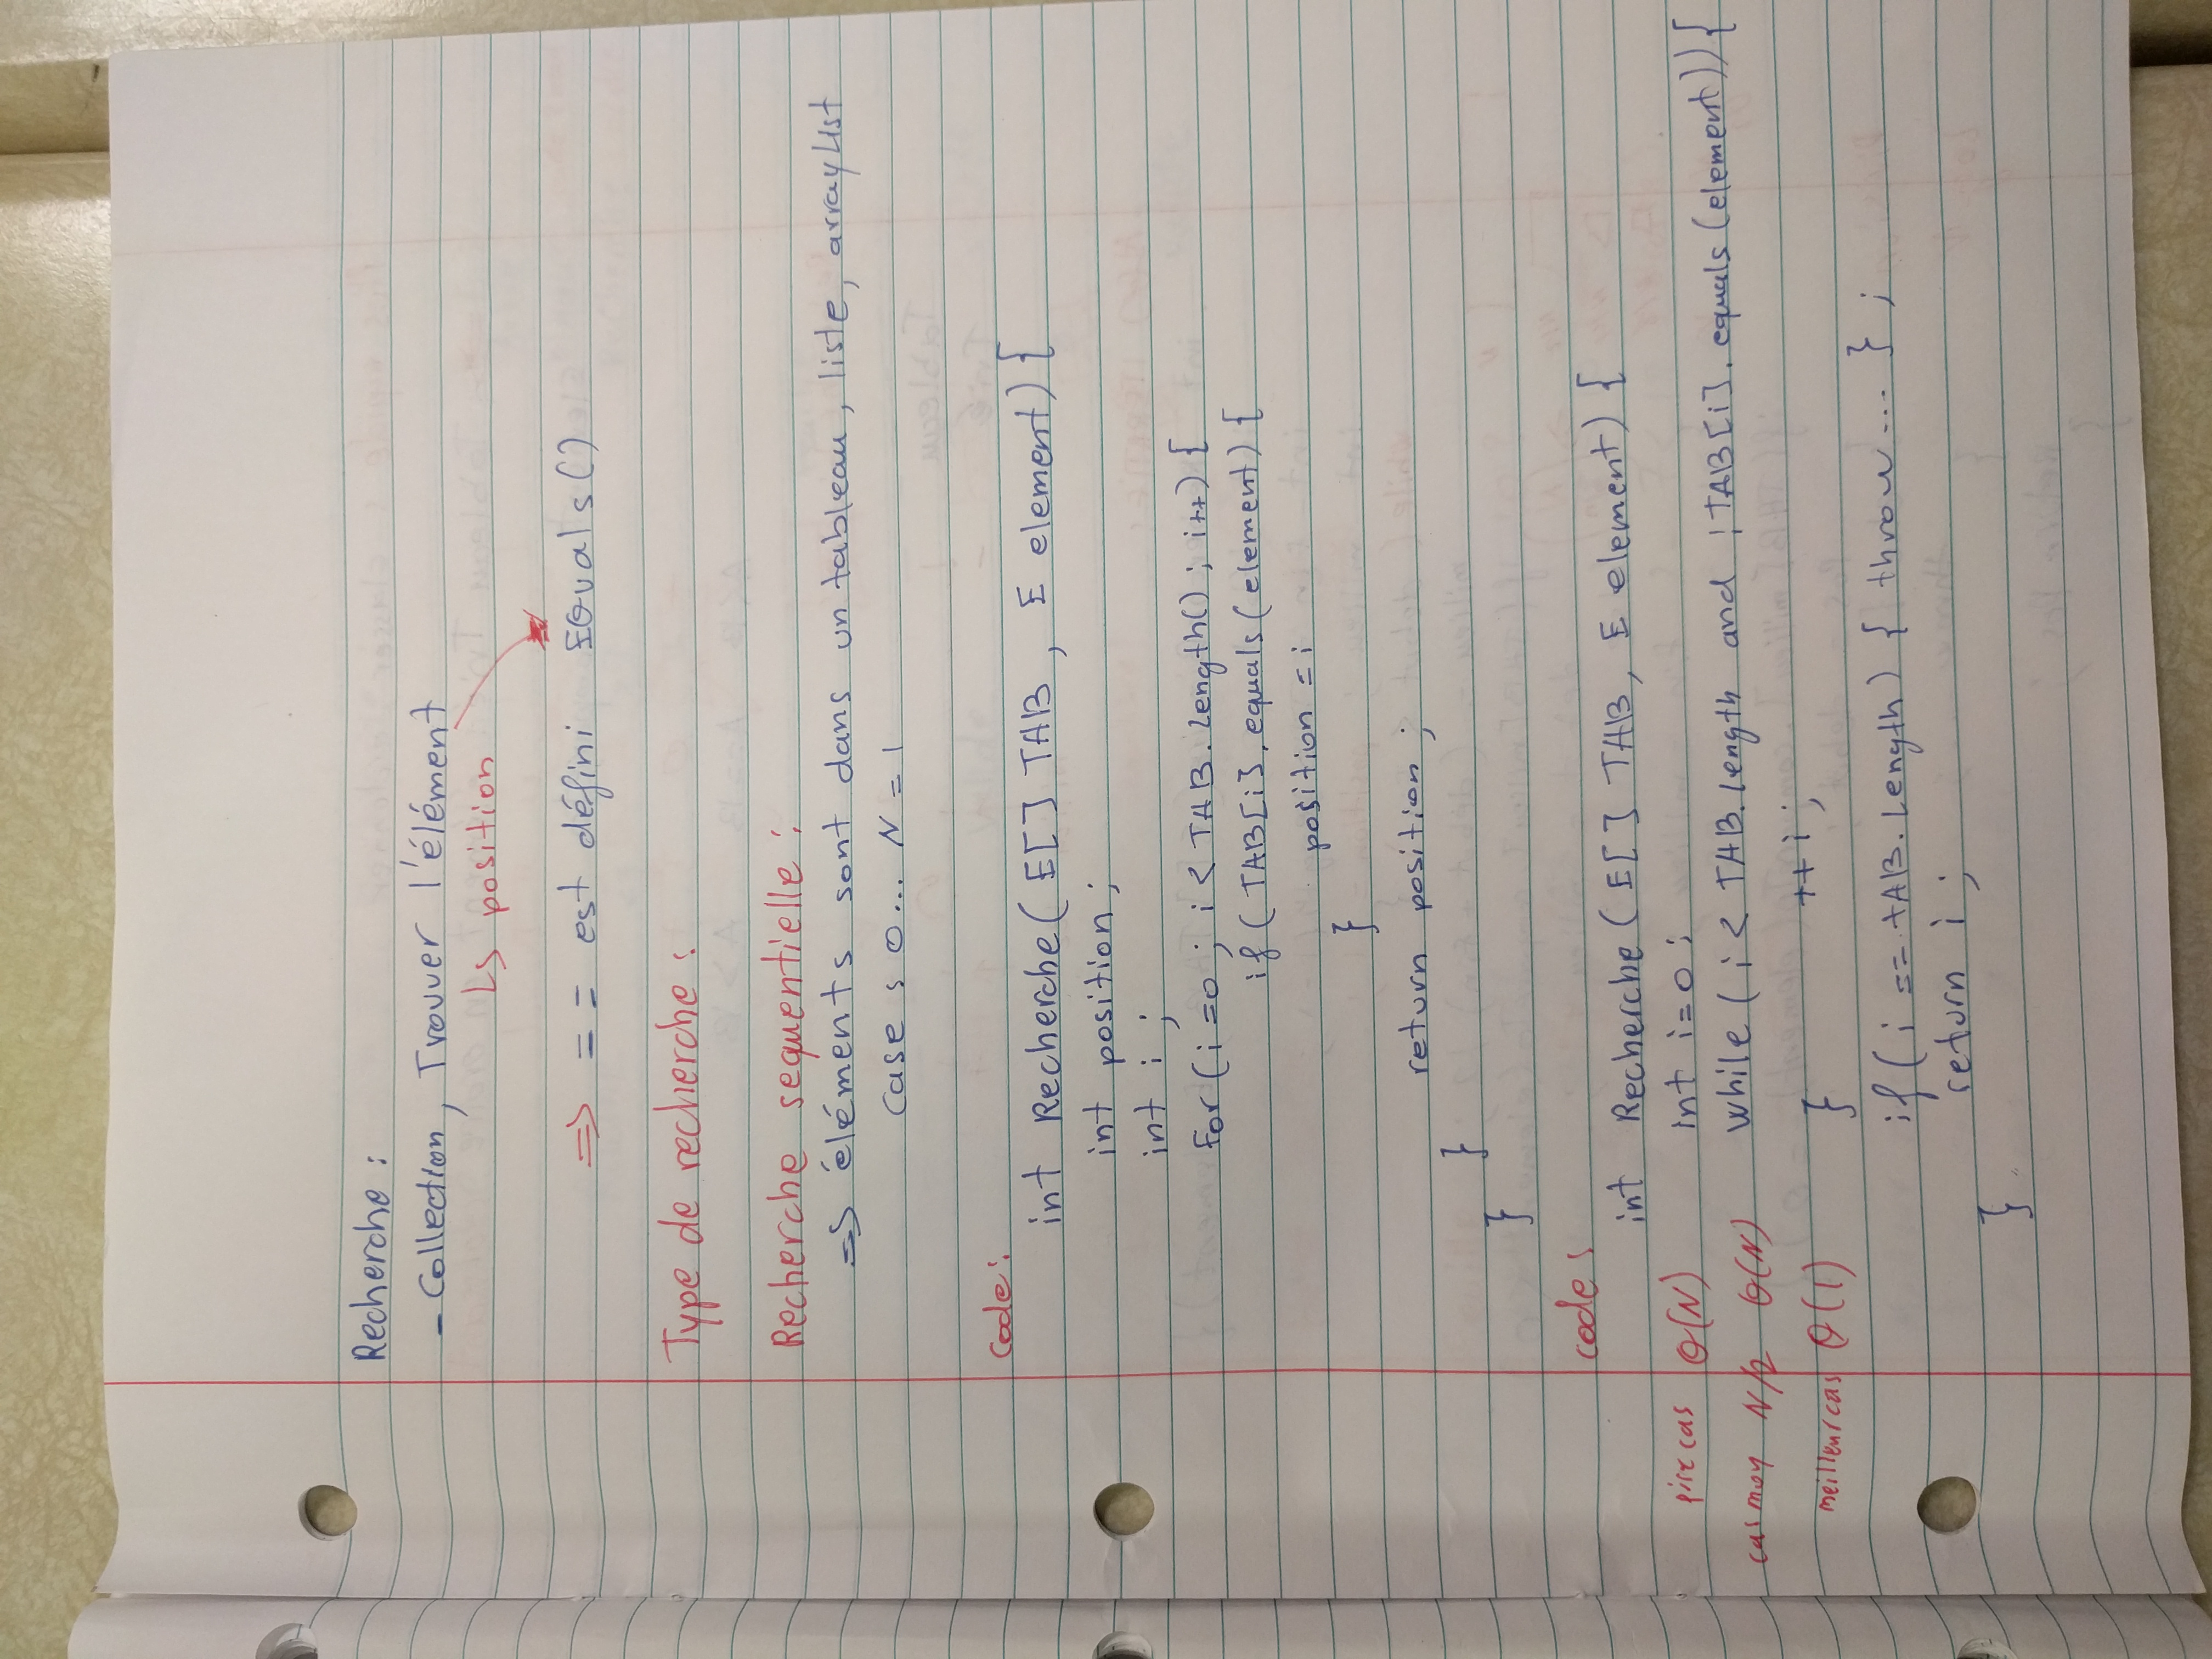 Recherche :
- Collection, Trouver l'élément
↳ position
⇒ == est défini EQuals()
Type de recherche :
Recherche sequentielle :
⇒ éléments sont dans un tableau, liste, arrayList
cases 0... N=1
Code :
int Recherche(E[] TAB, E element) {
int position;
int i;
For(i=0; i < TAB.length(); i++) {
if (TAB[i].equals(element) {
position = i
}
return position;
}
}
code :
int Recherche(E[] TAB, E element) {
pire cas θ(N) int i=0;
cas moy N/2 θ(N) while (i < TAB.length and !TAB[i].equals(element)) {
meilleur cas θ(1) ++i;
}
if (i == tAB.length) { throw... } ;
return i;
}